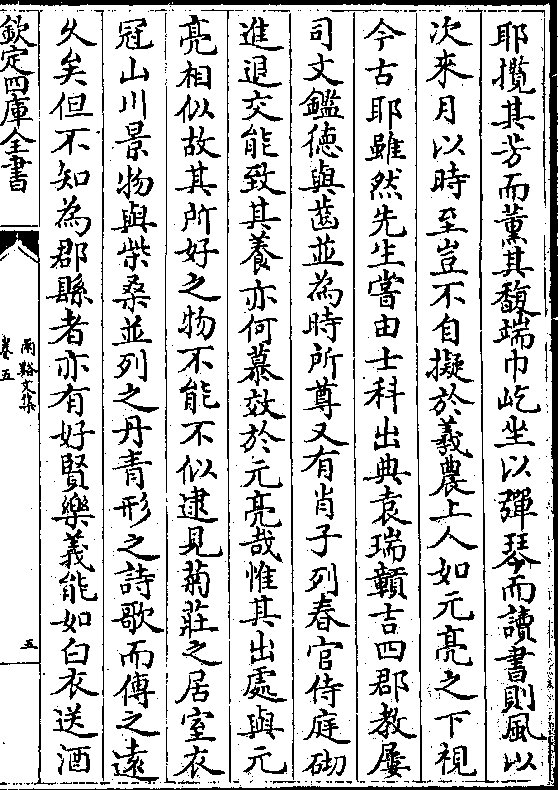 耶攬其芳而薰其馥端巾屹坐以彈琴而讀書則風以
次來月以時至豈不自擬於羲農上人如元亮之下視
今古耶雖然先生嘗由士科出典袁瑞贛吉四郡教屢
司文鑑德與齒並為時所尊又有肖子列春官侍庭砌
進退交能致其養亦何慕效於元亮哉惟其出處與元
亮相似故其所好之物不能不似逮見菊莊之居室衣
冠山川景物與柴桑並列之丹青形之詩歌而傳之遠
久矣但不知為郡縣者亦有好賢樂義能如白衣送酒
欽定四庫全書
兩谿文集
卷五
五